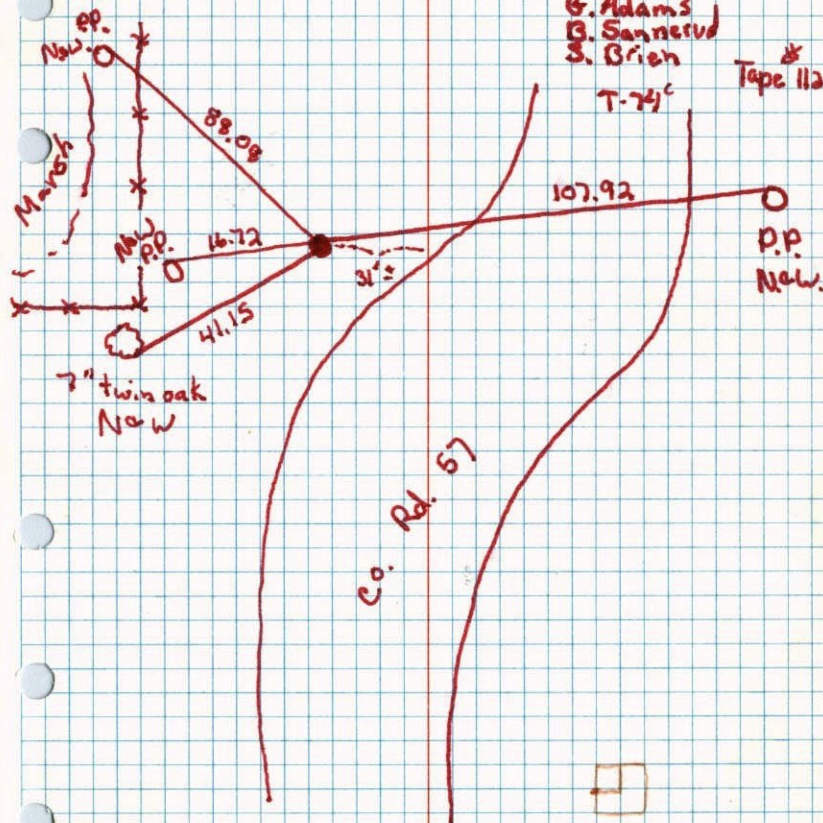 G. Adams
B. Sannerud
S. Brien
Tape 112
T-74°
P.P.
New
88.08
Marsh
107.92
P.P.
New
New
P.P.
16.72
31'±
41.15
7" twin oak
New
Co. Rd. 57